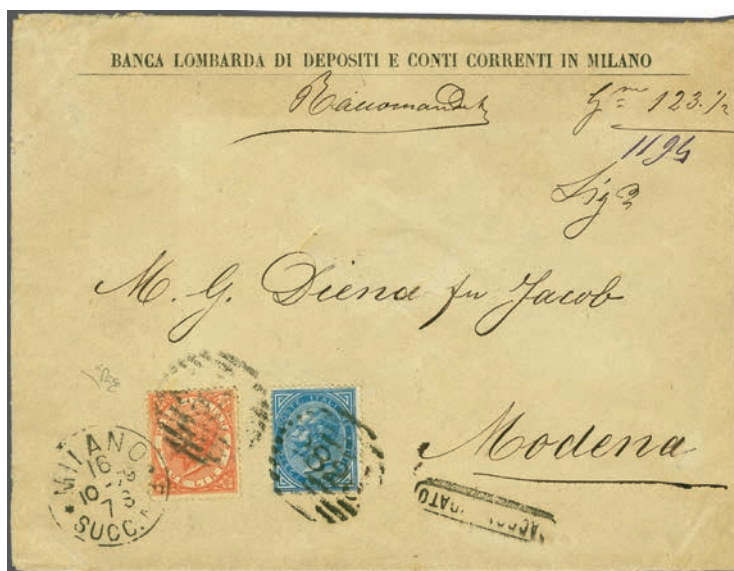 BANCA LOMBARDA DI DEPOSITI E CONTI CORRENTI IN MILANO
Raccomandata
123.½
1194
M. G. Diena fu Jacob
Modena
MILANO
16
10
73
SUCC.